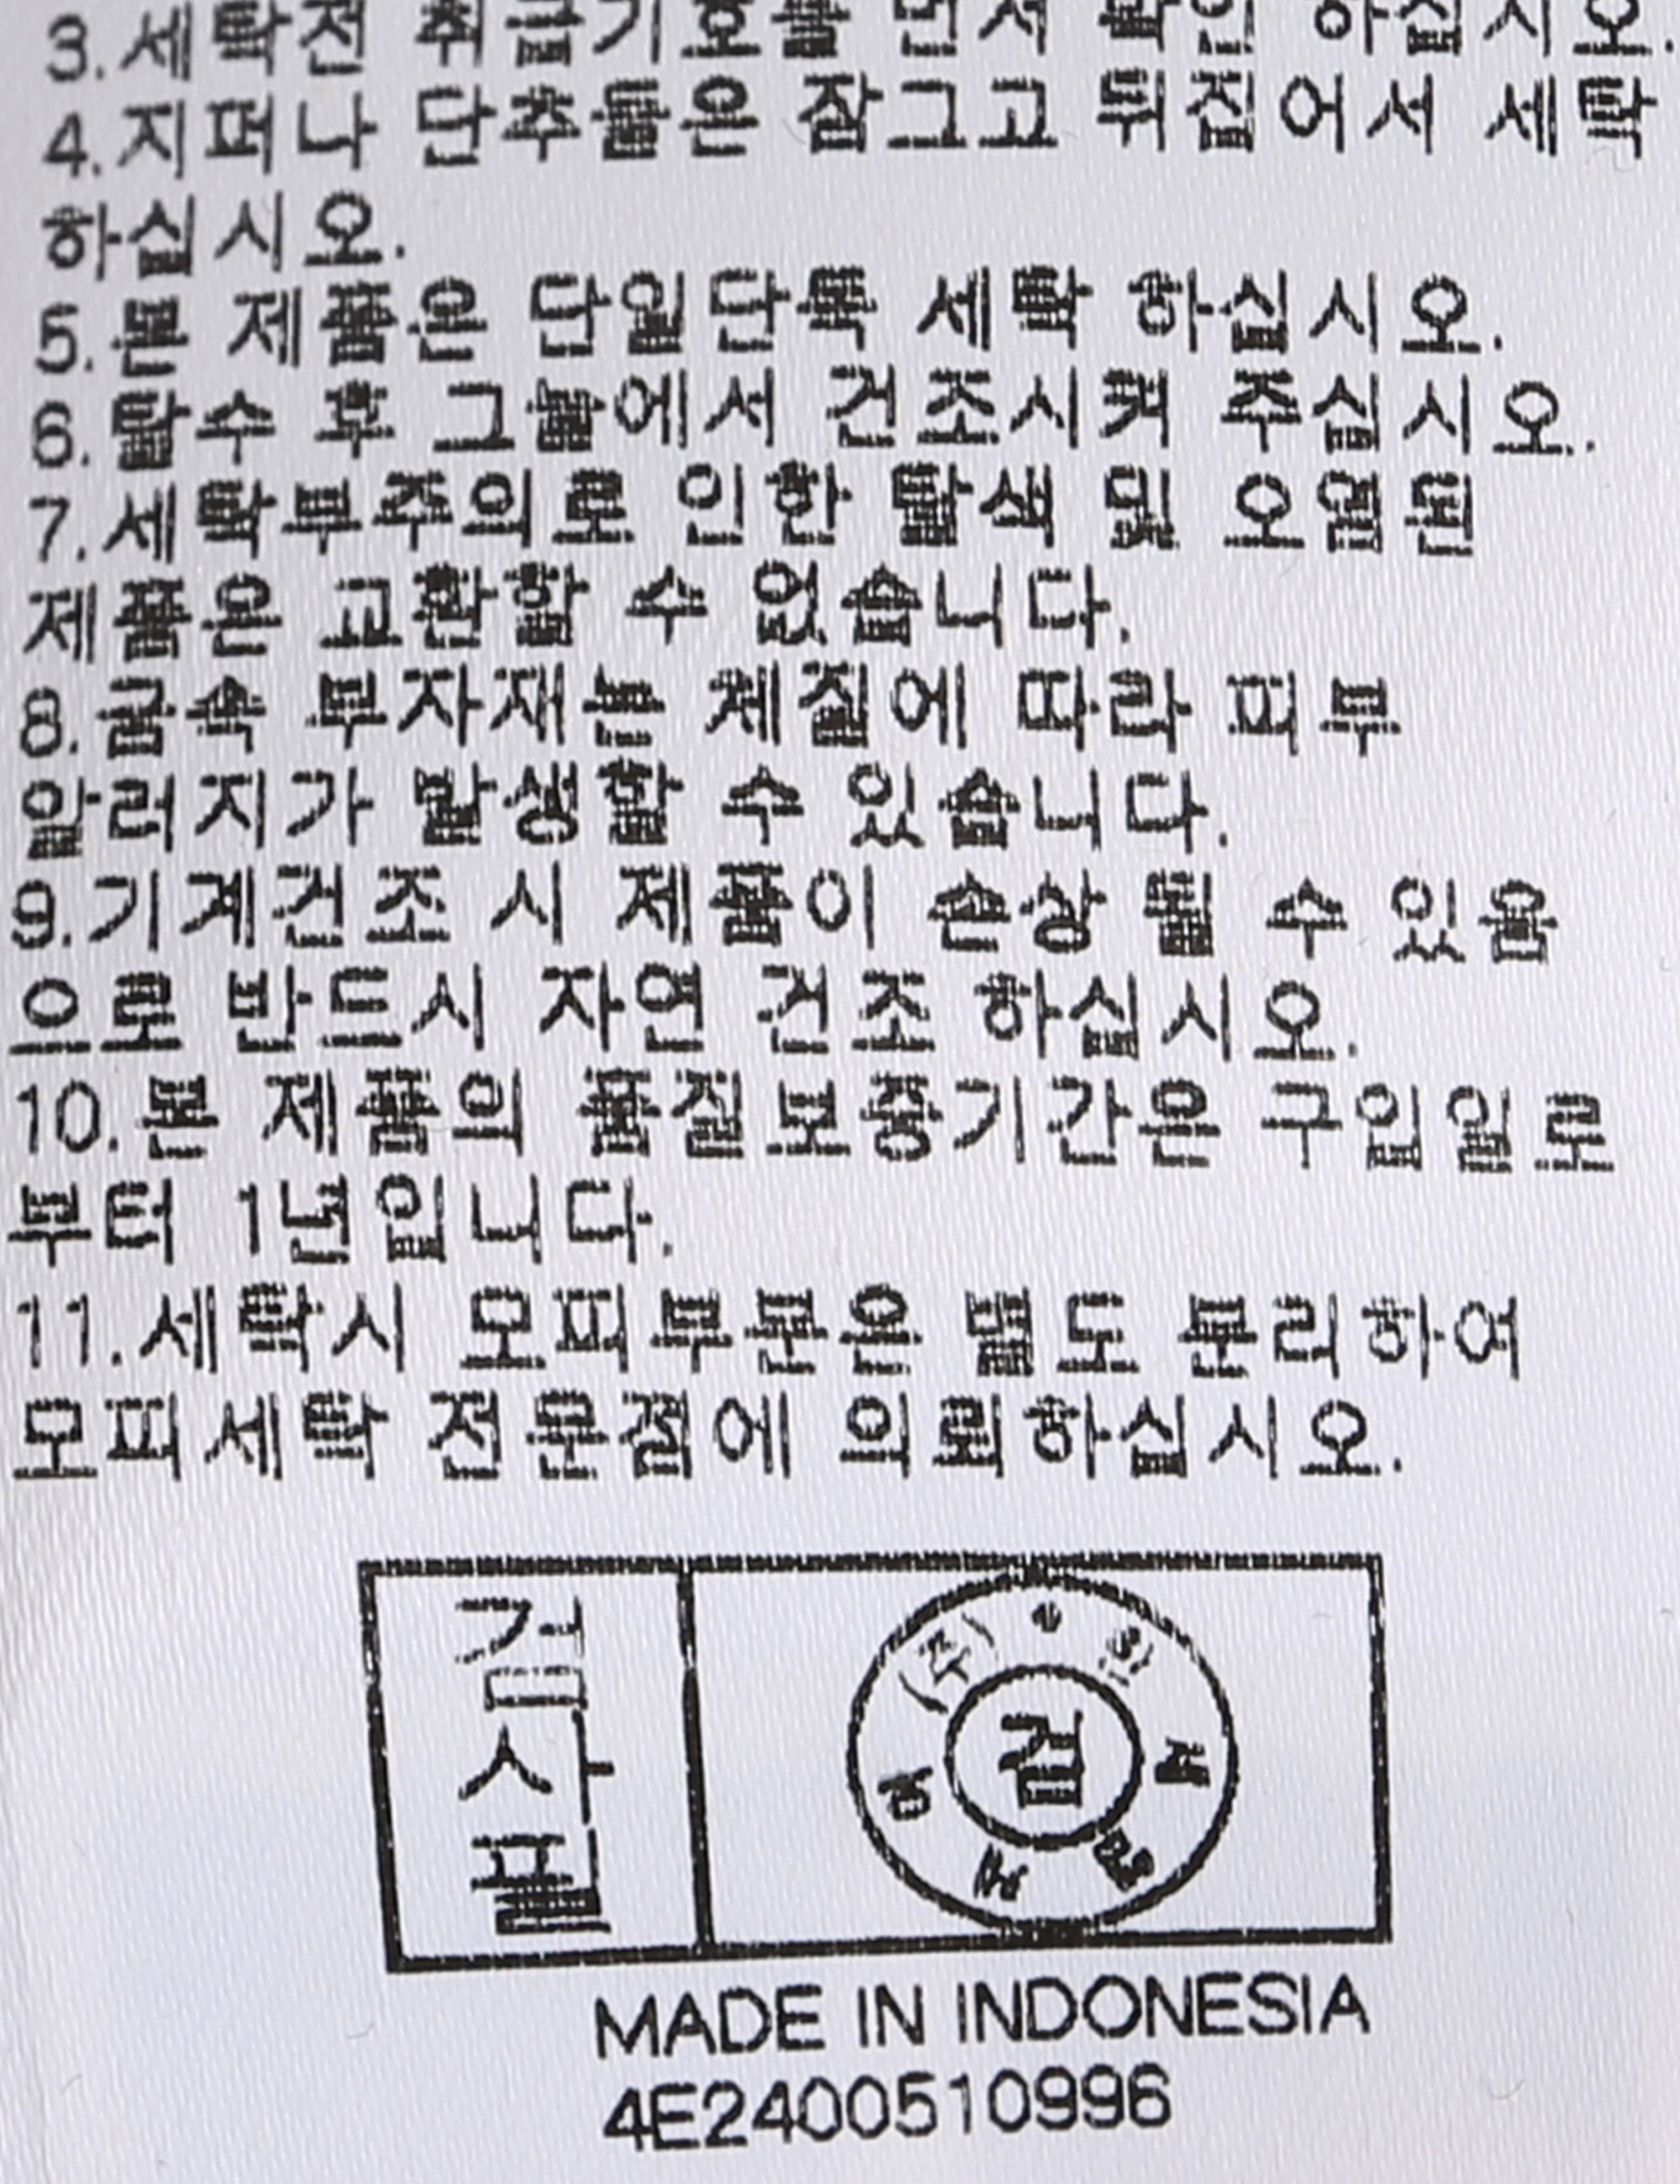 3.세탁전 취급기호를 먼저 확인 하십시오.
4.지퍼나 단추들은 잠그고 뒤집어서 세탁
하십시오.
5.본 제품은 단일단독 세탁 하십시오.
6.탈수 후 그늘에서 건조시켜 주십시오.
7.세탁부주의로 인한 탈색 및 오염된
제품은 교환할 수 없습니다.
8.금속 부자재는 체질에 따라 피부
알러지가 발생할 수 있습니다.
9.기계건조 시 제품이 손상 될 수 있음
으로 반드시 자연 건조 하십시오.
10.본 제품의 품질보증기간은 구입일로
부터 1년입니다.
11.세탁시 모피부분은 별도 분리하여
모피세탁 전문점에 의뢰하십시오.
검
사
필
(주)
검
MADE IN INDONESIA
4E2400510996